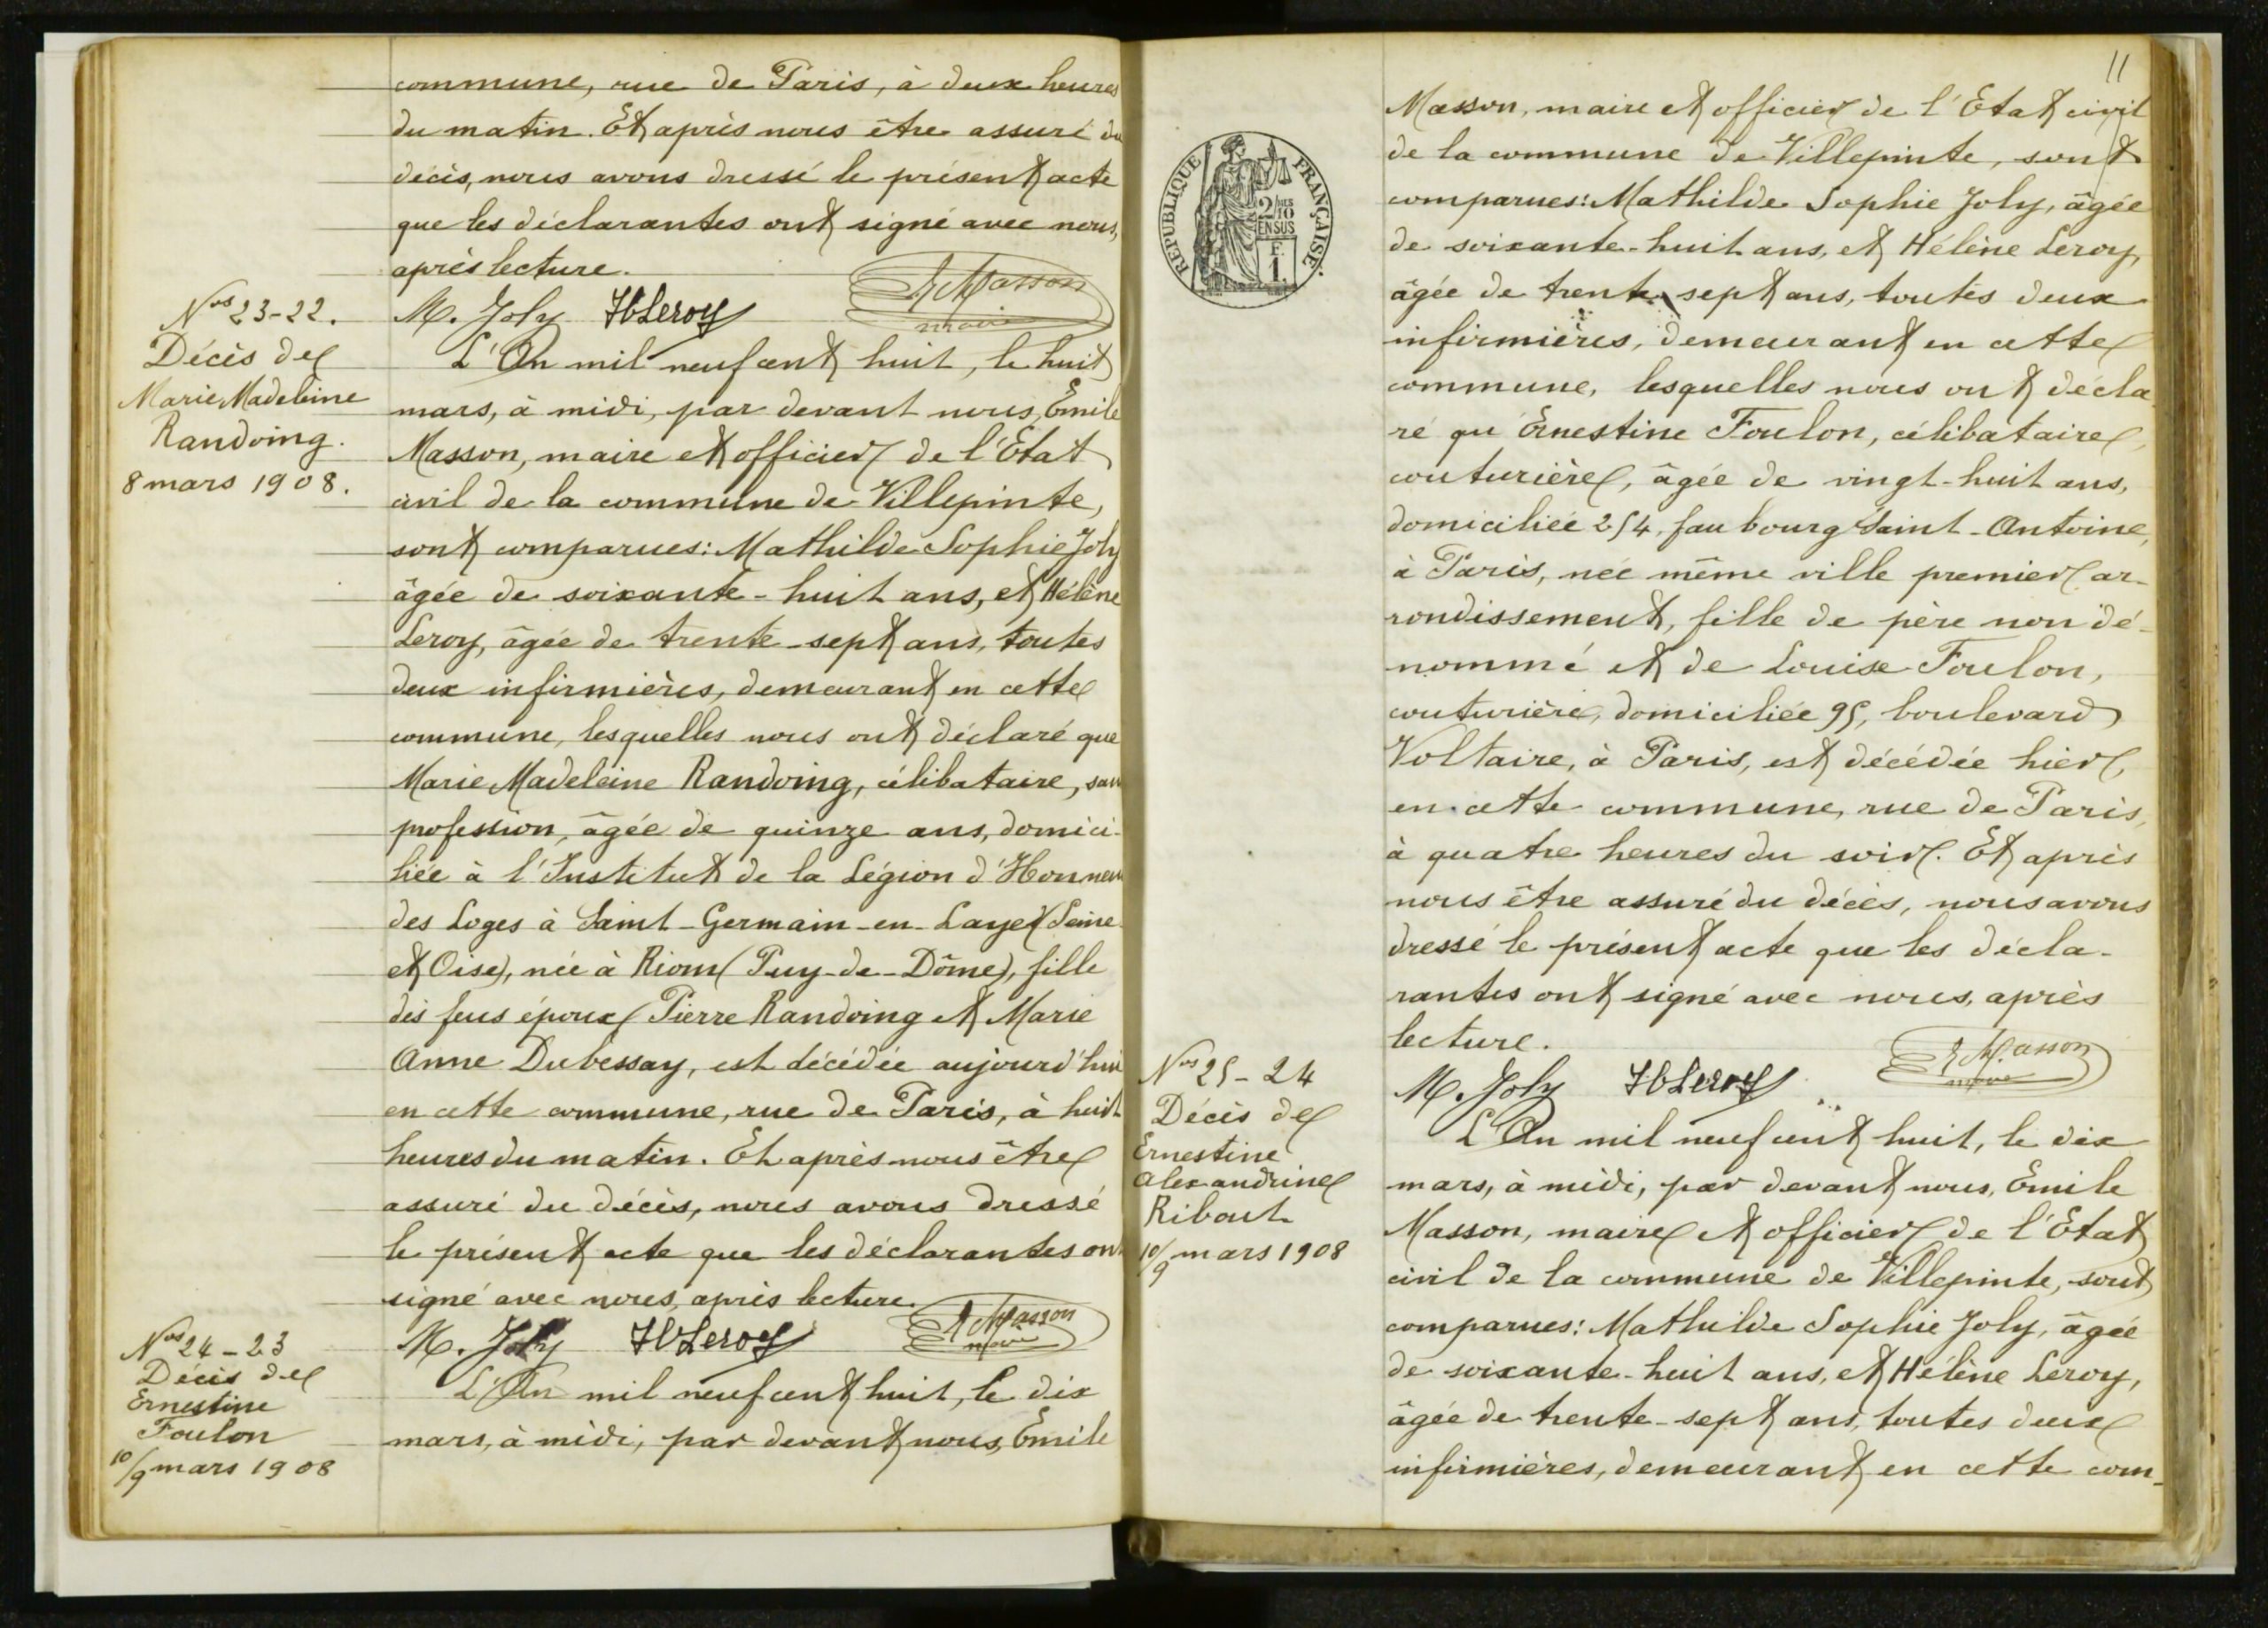 commune, rue de Paris, à deux heures
du matin. Et après nous être assuré du
décès, nous avons dressé le présent acte
que les déclarantes ont signé avec nous,
après lecture.
M. Joly HLeroy E Masson
maire
Nos 23-22.
Décès de
Marie Madeleine
Randoing.
8 mars 1908.
L'An mil neuf cent huit, le huit
mars, à midi, par devant nous, Emile
Masson, maire et officier de l'Etat
civil de la commune de Villepinte,
sont comparues: Mathilde Sophie Joly
âgée de soixante-huit ans, et Hélène
Leroy, âgée de trente-sept ans, toutes
deux infirmières, demeurant en cette
commune, lesquelles nous ont déclaré que
Marie Madeleine Randoing, célibataire, sans
profession, âgée de quinze ans, domici-
liée à l'Institut de la Légion d'Honneur
des Loges à Saint-Germain-en-Laye (Seine
et Oise), née à Riom (Puy-de-Dôme), fille
des feus époux Pierre Randoing et Marie
Anne Dubessay, est décédée aujourd'hui
en cette commune, rue de Paris, à huit
heures du matin. Et après nous être
assuré du décès, nous avons dressé
le présent acte que les déclarantes ont
signé avec nous, après lecture.
M. Joly HLeroy E Masson
maire
Nos 24-23
Décès de
Ernestine
Foulon
10/9 mars 1908
L'An mil neuf cent huit, le dix
mars, à midi, par devant nous, Emile
11
RÉPUBLIQUE FRANÇAISE
2/10
EN SUS
F.
1.
Masson, maire et officier de l'Etat civil
de la commune de Villepinte, sont
comparues: Mathilde Sophie Joly, âgée
de soixante-huit ans, et Hélène Leroy,
âgée de trente sept ans, toutes deux
infirmières, demeurant en cette
commune, lesquelles nous ont décla
ré qu'Ernestine Foulon, célibataire,
couturière, âgée de vingt-huit ans,
domiciliée 254, faubourg Saint-Antoine,
à Paris, née même ville premier ar-
rondissement, fille de père non dé-
nommé et de Louise Foulon,
couturière, domiciliée 95, boulevard
Voltaire, à Paris, est décédée hier,
en cette commune, rue de Paris,
à quatre heures du soir. Et après
nous être assuré du décès, nous avons
dressé le présent acte que les décla-
rantes ont signé avec nous, après
lecture.
M. Joly HLeroy E Masson
maire
Nos 25-24
Décès de
Ernestine
Alexandrine
Ribout
10/9 mars 1908
L'An mil neuf cent huit, le dix
mars, à midi, par devant nous, Emile
Masson, maire et officier de l'Etat
civil de la commune de Villepinte, sont
comparues: Mathilde Sophie Joly, âgée
de soixante-huit ans, et Hélène Leroy,
âgée de trente-sept ans, toutes deux
infirmières, demeurant en cette com-